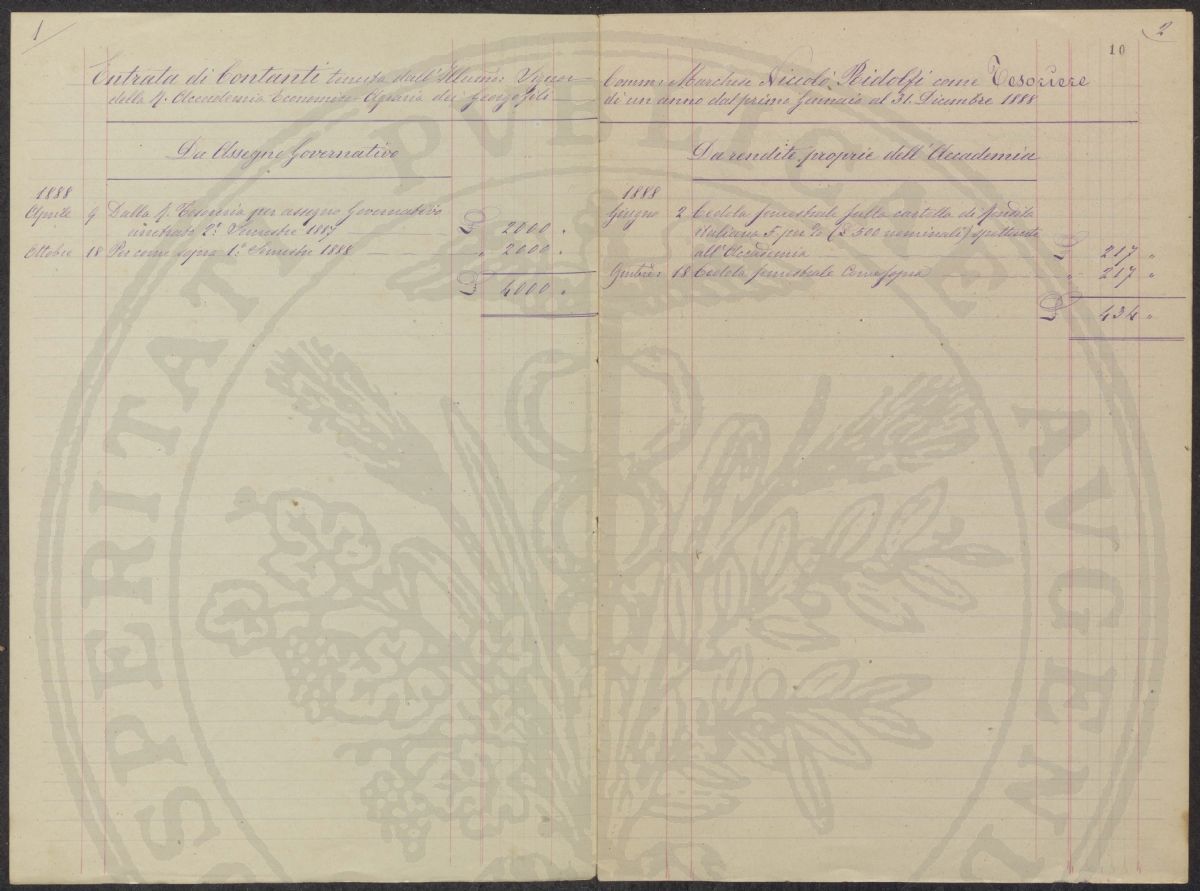 1
Entrata di Contanti tenuta dall'Illumo: Signor
della R. Accademia Economico-Agraria dei Georgofili
Da Assegno Governativo
1888
Aprile 9 Dalla R. Tesoreria per assegno Governativo
arretrato 2º: Semestre 1887 £ 2000 "
Ottobre 18 Per come sopra 1º: Semestre 1888 " 2000 "
£ 4000 "
2
10
Comm: Marchese Niccolò Ridolfi come Tesoriere
di un anno dal primo Gennaio al 31. Dicembre 1888
Da rendite proprie dell'Accademia
1888
Giugno 2 Cedola semestrale sulla cartella di Rendita
Italiana 5 per % (£ 500 nominali) spettante
all'Accademia £ 217 "
18 Cedola semestrale come sopra " 217 "
£ 434 "
PROSPERITATI PUBLICAE AUGENDAE